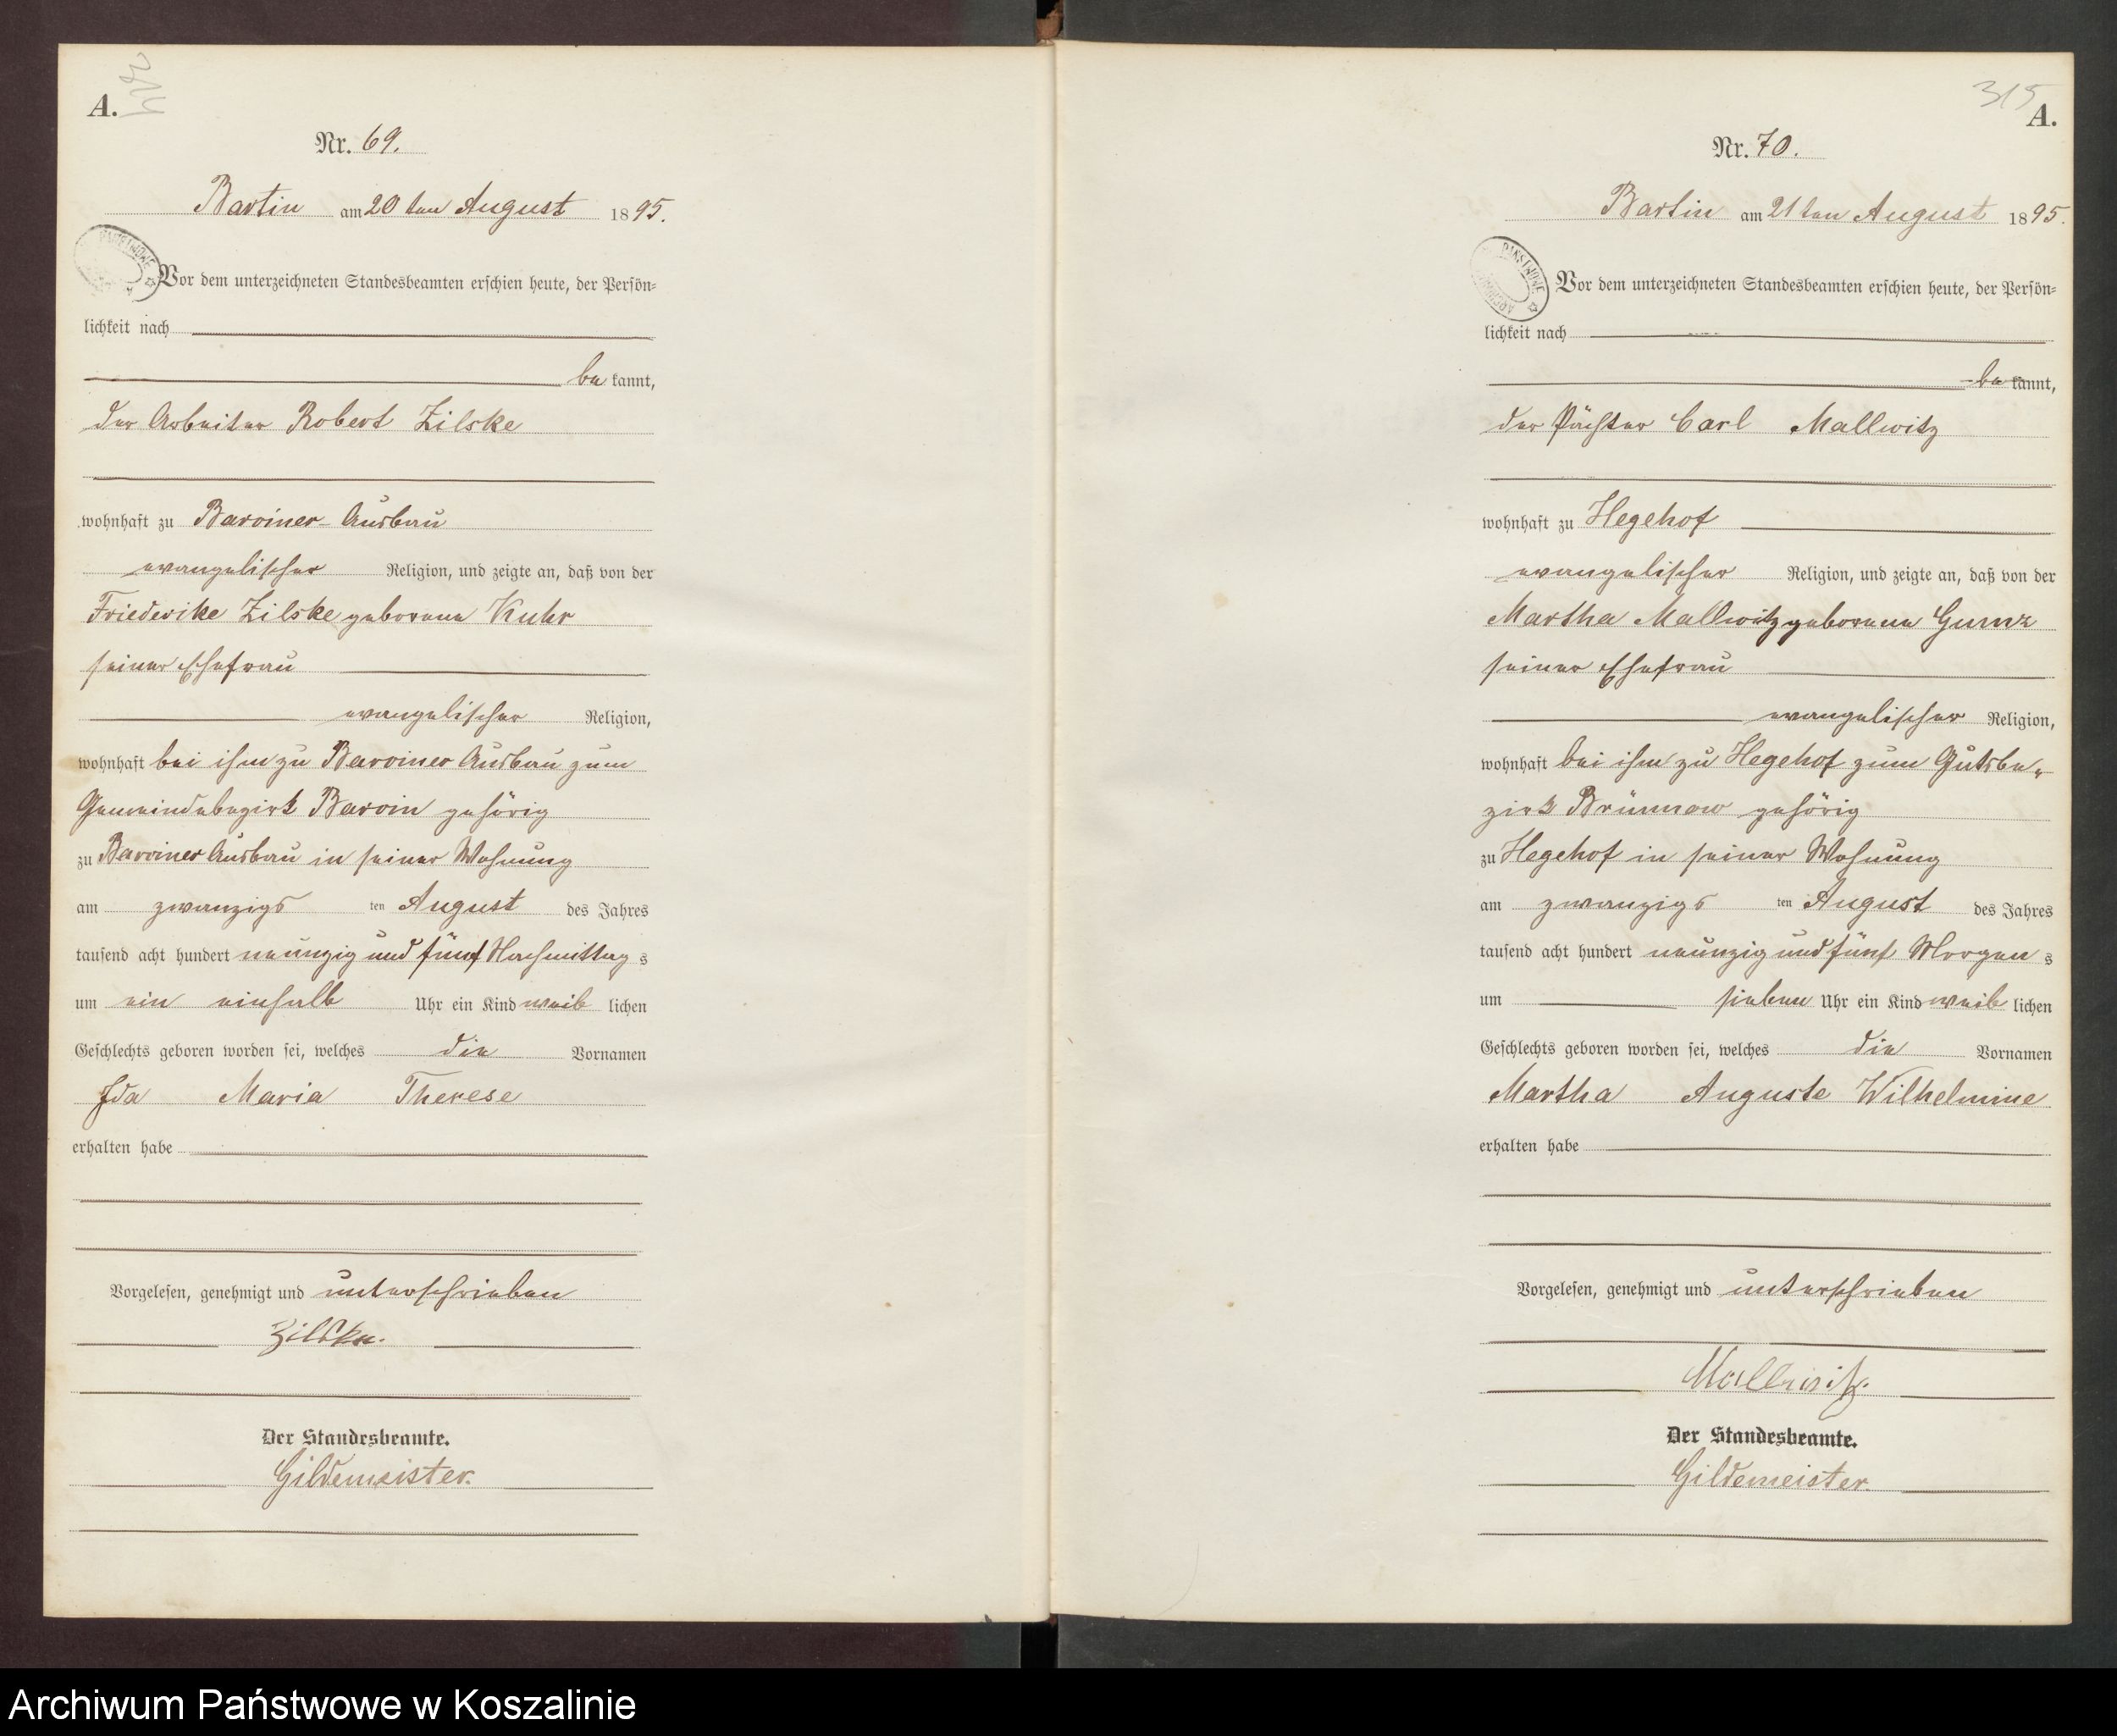 A.
Nr. 69.
Bartin am 20 ten August 1895.
Vor dem unterzeichneten Standesbeamten erschien heute, der Persön=
lichkeit nach
be kannt,
der Arbeiter Robert Zilske
wohnhaft zu Barviner Ausbau
evangelischer Religion, und zeigte an, daß von der
Friederike Zilske geborene Kuhr
seiner Ehefrau
evangelischer Religion,
wohnhaft bei ihm zu Barviner Ausbau zum
Gemeindebezirk Barvin gehörig
zu Barviner Ausbau in seiner Wohnung
am zwanzigs ten August des Jahres
tausend acht hundert neunzig und fünf Nachmittag s
um ein einhalb Uhr ein Kind weib lichen
Geschlechts geboren worden sei, welches die Vornamen
Ida Maria Therese
erhalten habe
Vorgelesen, genehmigt und unterschrieben
Zilske.
Der Standesbeamte.
Gildemeister.
315
A.
Nr. 70.
Bartin am 21 ten August 1895.
Vor dem unterzeichneten Standesbeamten erschien heute, der Persön=
lichkeit nach
be kannt,
der Pächter Carl Mallwitz
wohnhaft zu Hegehof
evangelischer Religion, und zeigte an, daß von der
Martha Mallwitz geborene Gumz
seiner Ehefrau
evangelischer Religion,
wohnhaft bei ihm zu Hegehof zum Gutsbe„
zirk Brünnow gehörig
zu Hegehof in seiner Wohnung
am zwanzigs ten August des Jahres
tausend acht hundert neunzig und fünf Morgen s
um sieben Uhr ein Kind weib lichen
Geschlechts geboren worden sei, welches die Vornamen
Martha Auguste Wilhelmine
erhalten habe
Vorgelesen, genehmigt und unterschrieben
Mallwitz.
Der Standesbeamte.
Gildemeister.
Archiwum Państwowe w Koszalinie